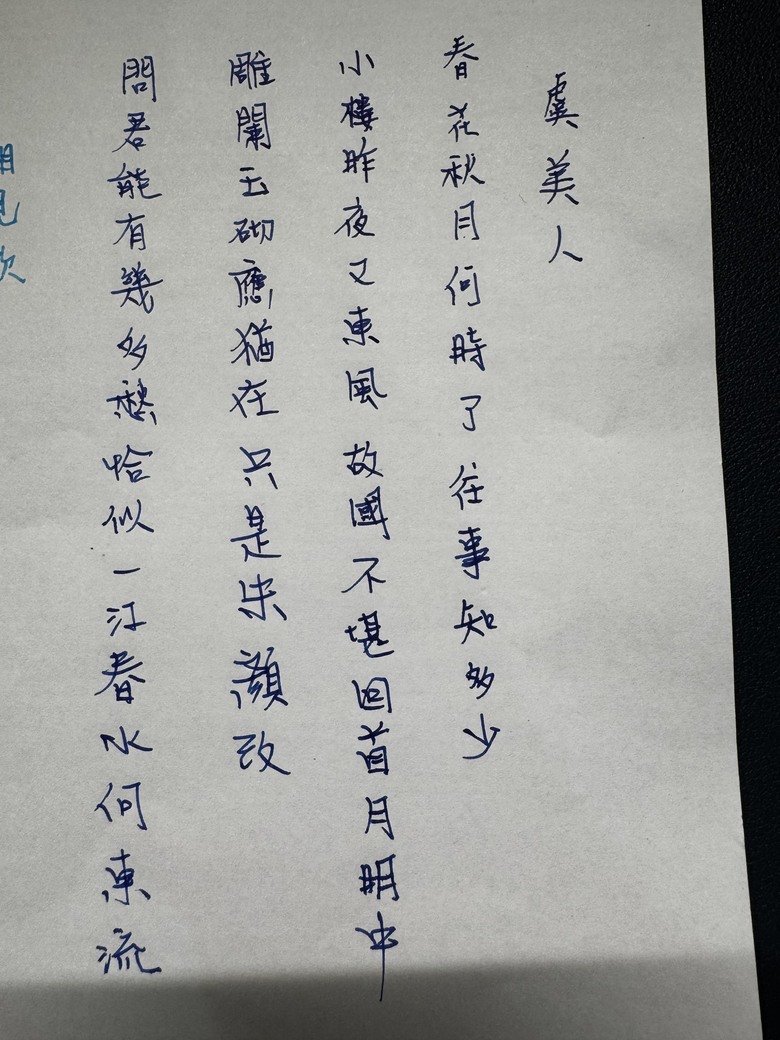 虞美人
春花秋月何時了 往事知多少
小樓昨夜又東風 故國不堪回首月明中
雕闌玉砌應猶在 只是朱顏改
問君能有幾多愁恰似一江春水何東流